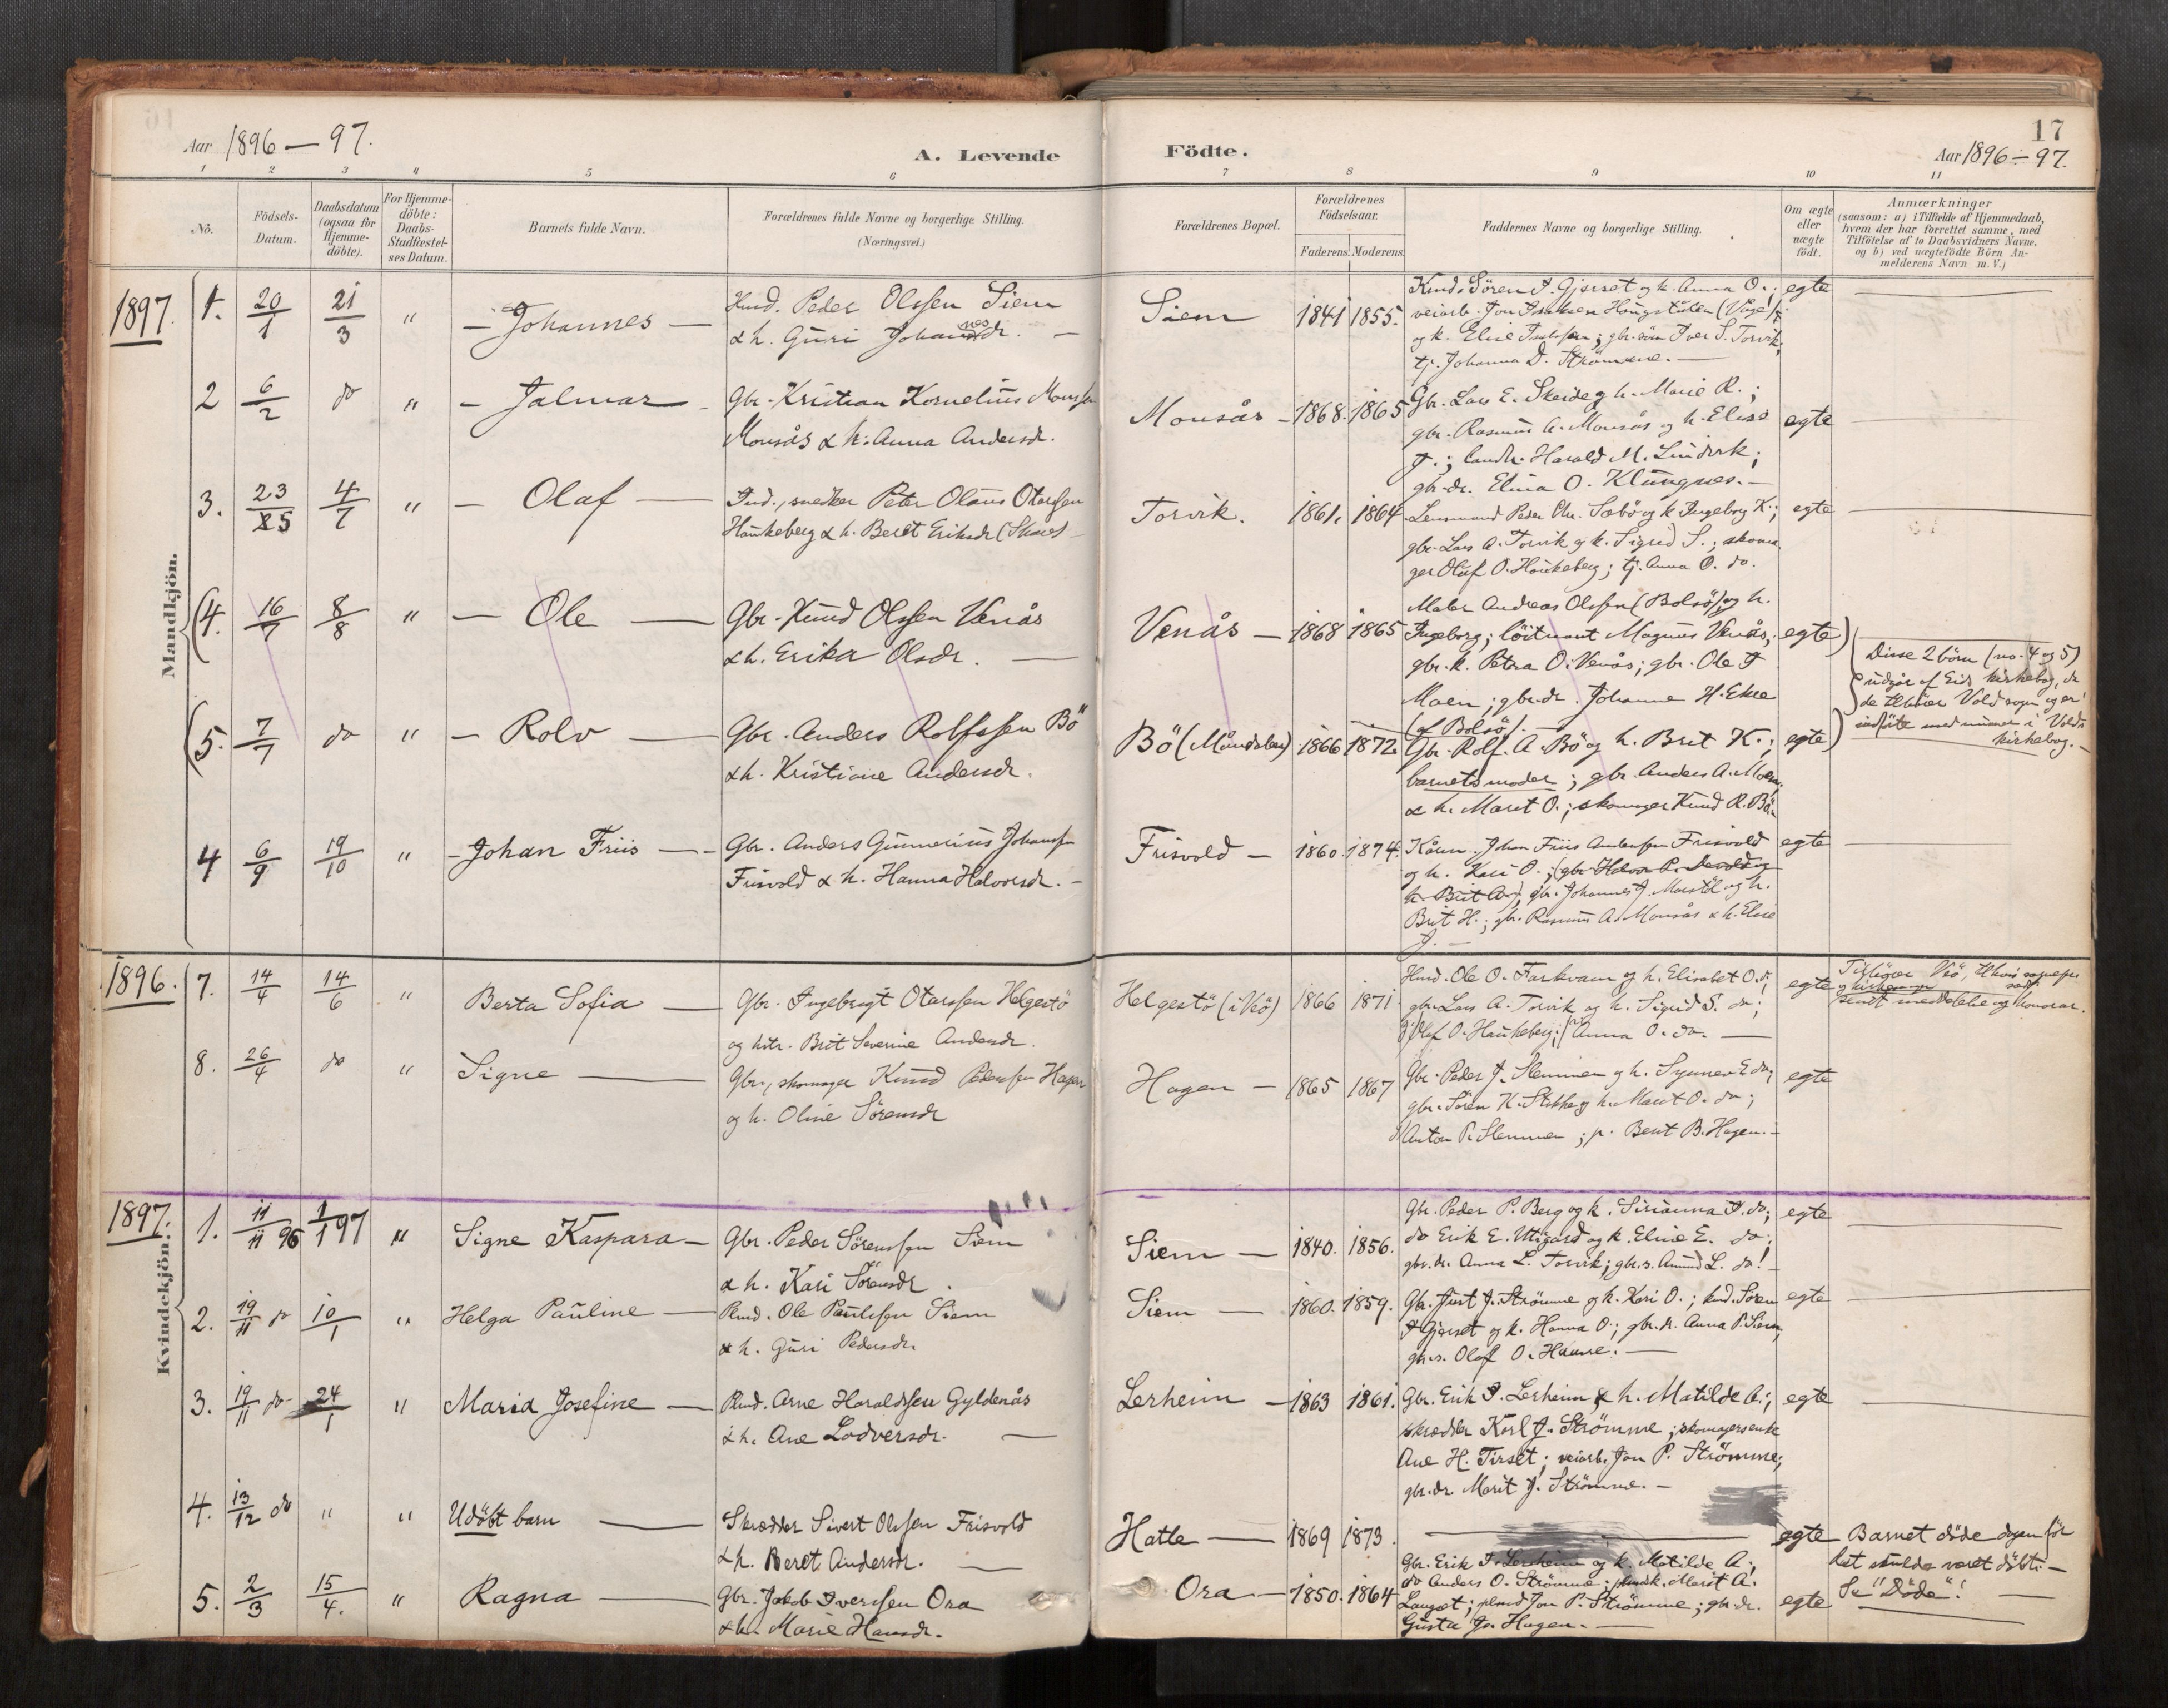 Aar 1896 – 97.
A. Levende Födte.
17
Aar 1896 – 97.
1 2 3 4 5 6 7 8 9 10 11
No.
Födsels-Datum.
Daabsdatum (ogsaa for Hjemme-döbte).
For Hjemme-döbte: Daabs-Stadfæstel-ses Datum.
Barnets fulde Navn.
Forældrenes fulde Navne og borgerlige Stilling.
(Næringsvei.)
Forældrenes Bopæl.
Forældrenes Födselsaar.
Faderens. Moderens.
Faddernes Navne og borgerlige Stilling.
Om ægte eller uægte födt.
Anmærkninger
(saasom: a) i Tilfælde af Hjemmedaab,
hvem der har forrettet samme, med
Tilföielse af to Daabsvidners Navne.
og b) ved uægtefödte Börn An-
melderens Navn m. V.)
Mandkjön.
1897. 1. 20/1 21/3 " – Johannes – Peder Olssen Siem
& h. Guri Johannesdr. –
Siem 1841 1855.
Sören I. Gjerset og k. Anna O.; egte
veiarb. Jon
og k. Eline
tj. Johanna D. Strömme. –
2 6/2 do " – Jalmar – Gbr. Kristian Kornelius Monssen
Monsås & h. Anna Andersdr.
Monsås – 1868. 1865
Gbr. Lars E. Skeide og h. Marie R.;
gbr. Rasmus A. Monsås og h. Elise egte
J.; Harald M. Lindvik;
gbr. dr. Elina O. Klungnes. –
3. 23/5 4/7 " – Olaf – Ind., snedker Peter Olaus Otarssen
Haukeberg & h. Beret Eriksdr.
Torvik. 1861. 1864
Lensmand Peder Chr. Sæbö og k. Ingeborg K.; egte
gbr. Lars A. Torvik og k. Sigrid S.; skoma-
ger Oluf O. Haukeberg; tj. Anna O. do.
(4. 16/7 8/8 " – Ole – Gbr. Knud Olssen Venås
& h. Erika Olsdr. –
Venås – 1868 1865
Maler Andreas Olssen (Bolsö) og h.
Ingeborg; löitnant Magnus Venås; egte)
gbr. k. Petra O. Venås; gbr. Ole I
Moen; gbr. dr. Johanne H. Ekra
(af Bolsö). –
Disse 2 börn (no. 4 og 5)
udgår af Eids kirkebog, da
de tilhörer Vold sogn og er
indförte med numer i Volds
kirkebog. –
(5. 7/7 do " – Rolv – Gbr. Anders Rolfssen Bö
& h. Kristiane Andersdr.
Bö (Måndalen) 1866 1872.
Gbr. Rolf A. Bö og h. Brit K.; egte)
barnets moder; gbr. Anders A. Moen
& h. Maret O.; skomager Knud R. Bö. –
4 6/9 19/10 " – Johan Friis – Gbr. Anders Gunnerius Johanssen
Frisvold & h. Hanna Halvorsdr. –
Frisvold – 1860. 1874.
Kårm. Johan Friis Anderssen Frisvold egte
og h. Kari O.; (gbr. Halvor P. og
h. Brit A.); gbr. Johannes J. Morstöl og h.
Brit H.; gbr. Rasmus A. Monsås & h. Elise
J. –
1896. 7. 14/4 14/6 " Berta Sofia – Gbr. Ingebrigt Otarssen Helgestö
og hstr. Brit Severine Andersdr.
Helgestö (i Veö) 1866 1871
Ole O. Farkvam og h. Elisabet O. do; egte
gbr. Lars A. Torvik og h. Sigrid S. do;
Olaf O. Haukeberg; Anna O. do. –
Tilhörer Veö, til hvis sognepr.
sendt meddelelse og honorar.
8. 26/4 do " Signe – Gbr., skomager Knud Pederssen Hagen
og h. Oline Sörensdr
Hagen – 1865 1867
Gbr. Peder J. Slemmen og h. Synnev E. do; egte
gbr. Sören K. Stokke og h. Marit O. do;
Anton P. Slemmen; p. Berit B. Hagen. –
Kvindekjön.
1897. 1. 11/11 96 1/1 97 " Signe Kaspara – Gbr. Peder Sörenssen Siem
& h. Kari Sörensdr.
Siem – 1840. 1856.
Gbr. Peder P. Berg og k. Sirianna I. do; egte
do Erik E. Utigard og k. Eline E. do;
gbr. dr. Anna L. Torvik; gbr. s. Amund L. do! –
2. 19/11 do 10/1 " Helga Pauline – Plmd. Ole Paulssen Siem
& h. Guri Pedersdr.
Siem – 1860. 1859.
Gbr. Just J. Strömme og k. Kari O.; Sören egte
I Gjerset og k. Hanna O.; gbr. dr. Anna P. Siem;
gbr. s. Olaf O. –
3. 19/11 do 24/1 " Maria Josefine – Plmd. Arne Haraldssen Gyldenås
& h. Ane Lodversdr. –
Lerheim – 1863 1861.
Gbr. Erik I. Lerheim & h. Matilde A.; egte
skrædder Karl J. Strömme; skomagerenke
Ane H. Tirset; veiarb. Jon P. Strömme;
gbr. dr. Marit J. Strömme. –
4. 13/12 do " " Udöbt barn – Skrædder Sivert Olssen Frisvold
& h. Beret Andersdr. –
Hatle – 1869 1873.
– egte Barnet döde dagen för
det skulde været döbt. –
Se "Döde"! –
5. 2/3 15/4. " Ragna – Gbr. Jakob Iverssen Ora
& h. Marie Hansdr.
Ora – 1850. 1864
Gbr. Erik I. Lerheim og k. Matilde A.;
do Anders O. Strömme; Marit A.
Langset; plmd Jon P. Strömme; gbr. dr. egte
Gusta Hagen. –